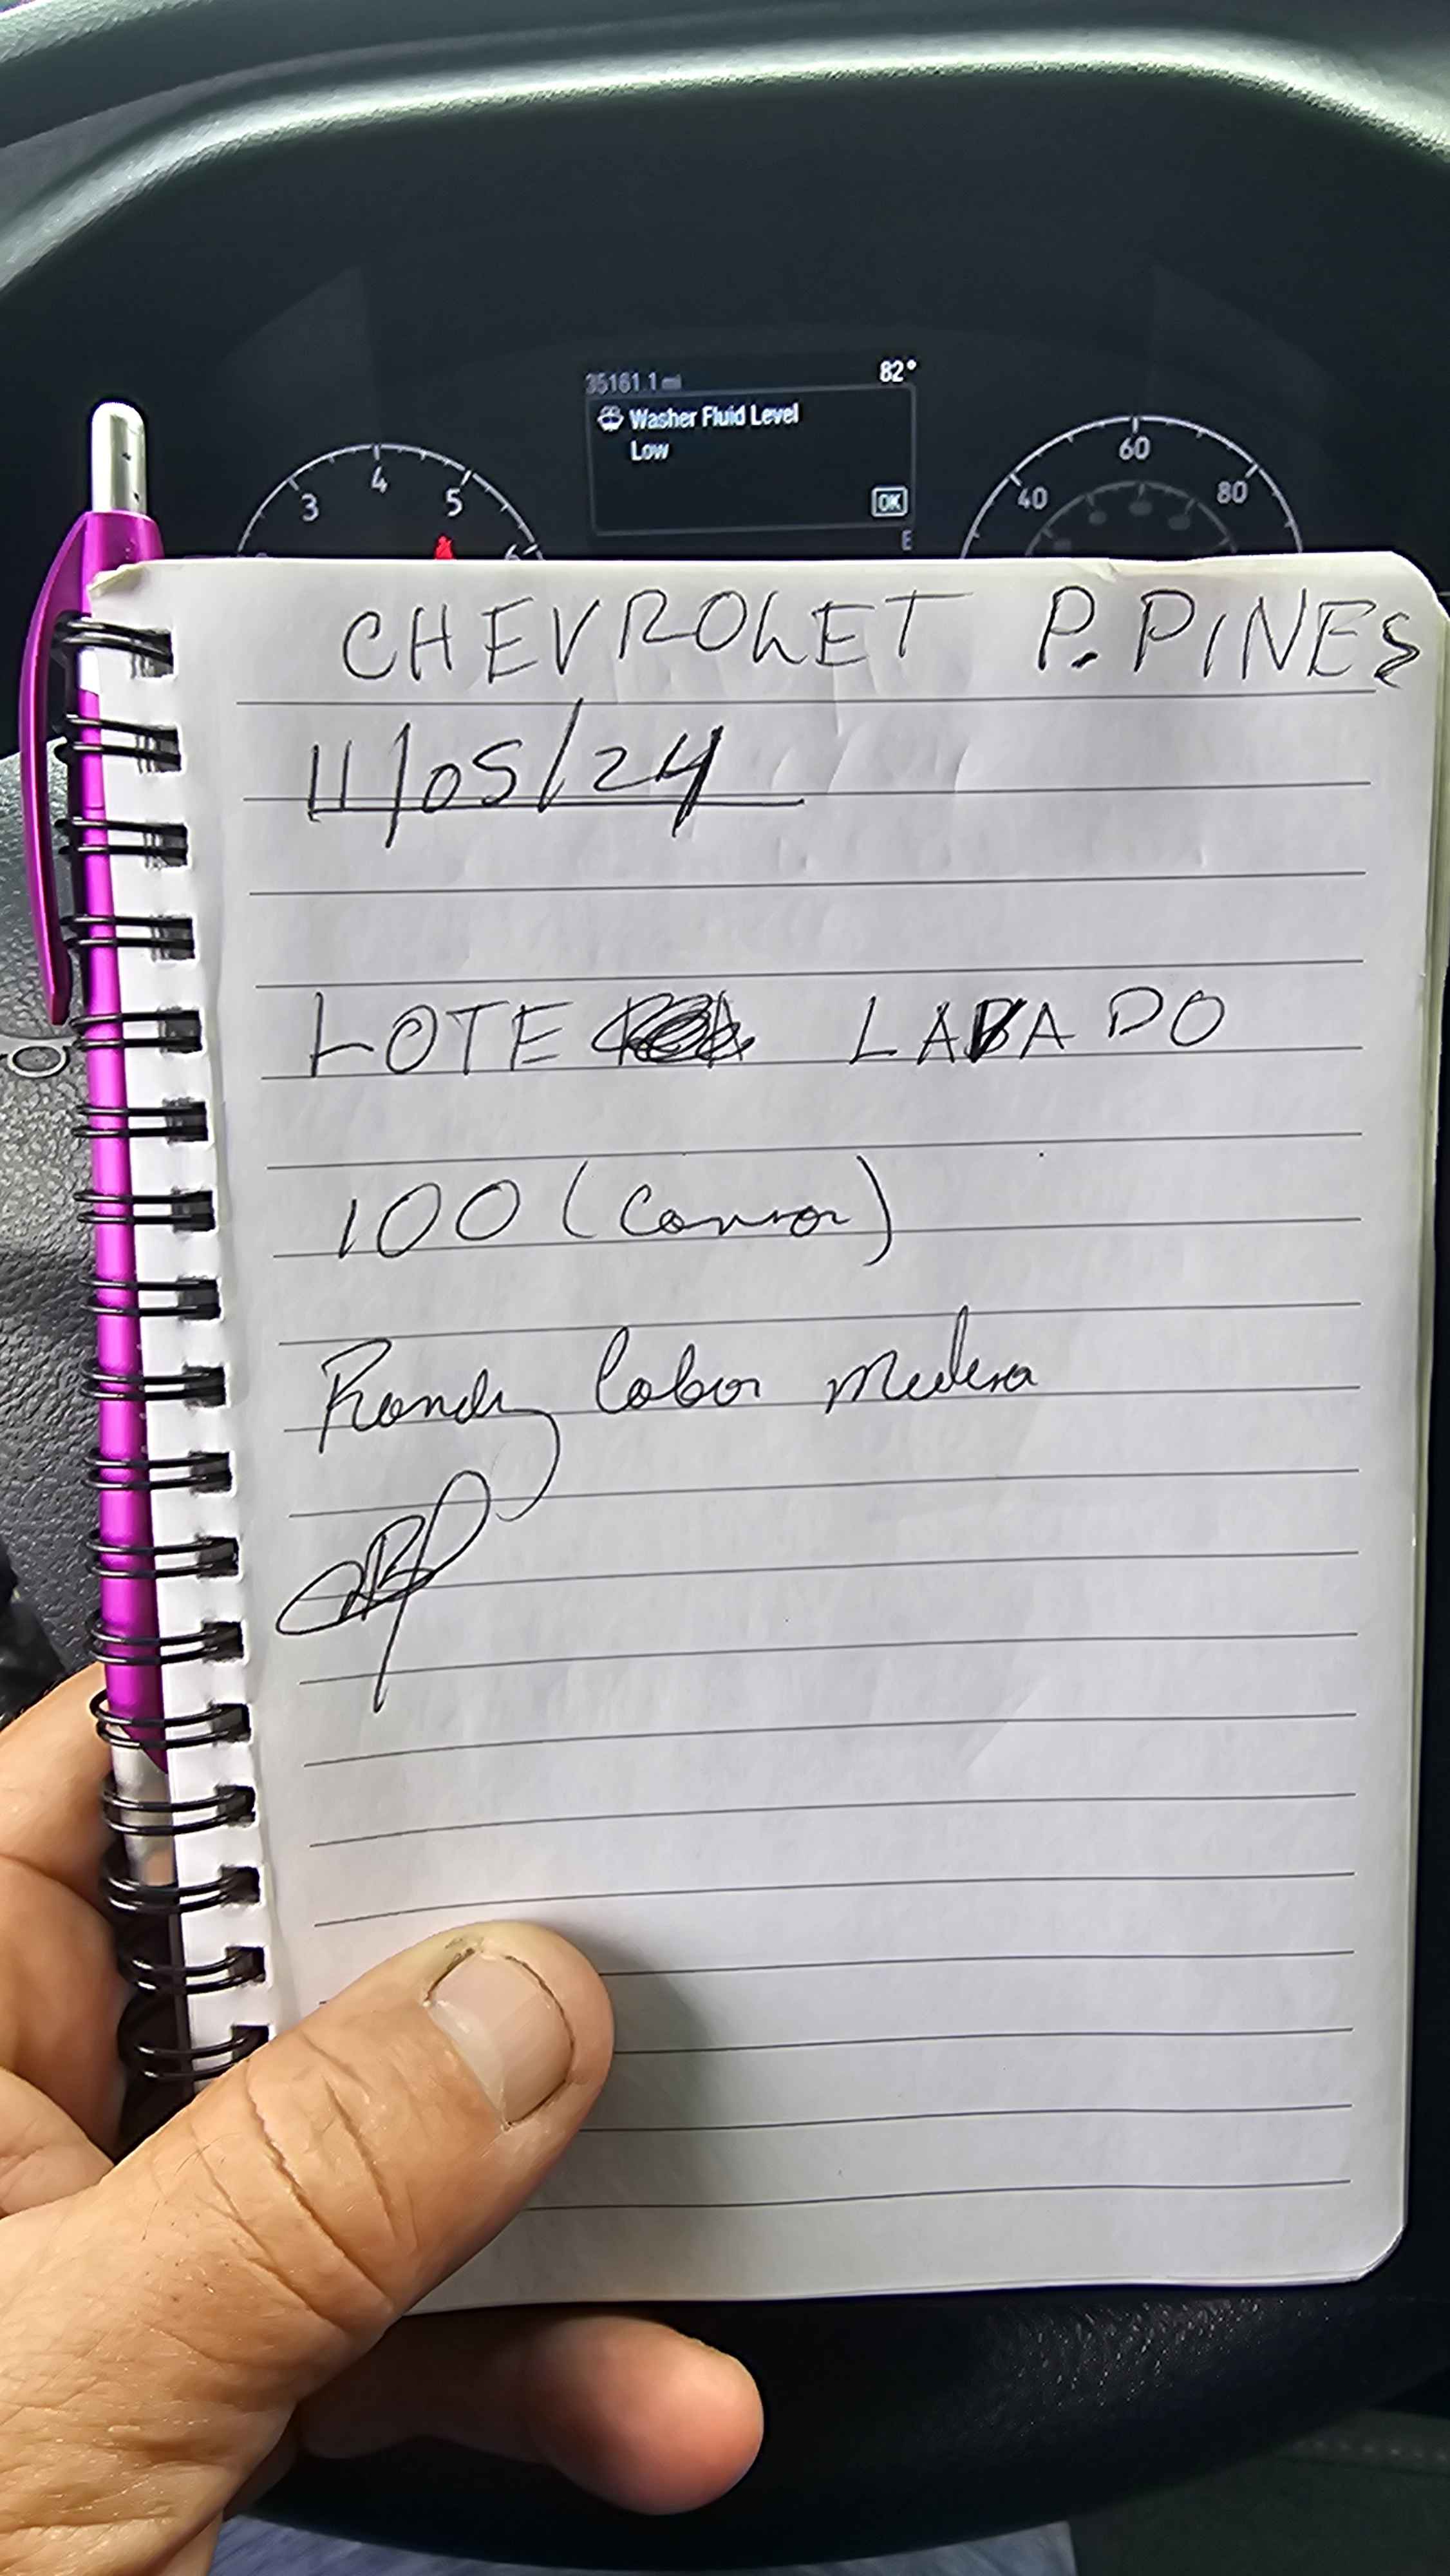 35161.1 mi 82°
Washer Fluid Level
Low
OK
E
3 4 5 6
40 60 80
CHEVROLET P. PINES
11/05/24
LOTE LAVADO
100 (Carros)
Randy Labor